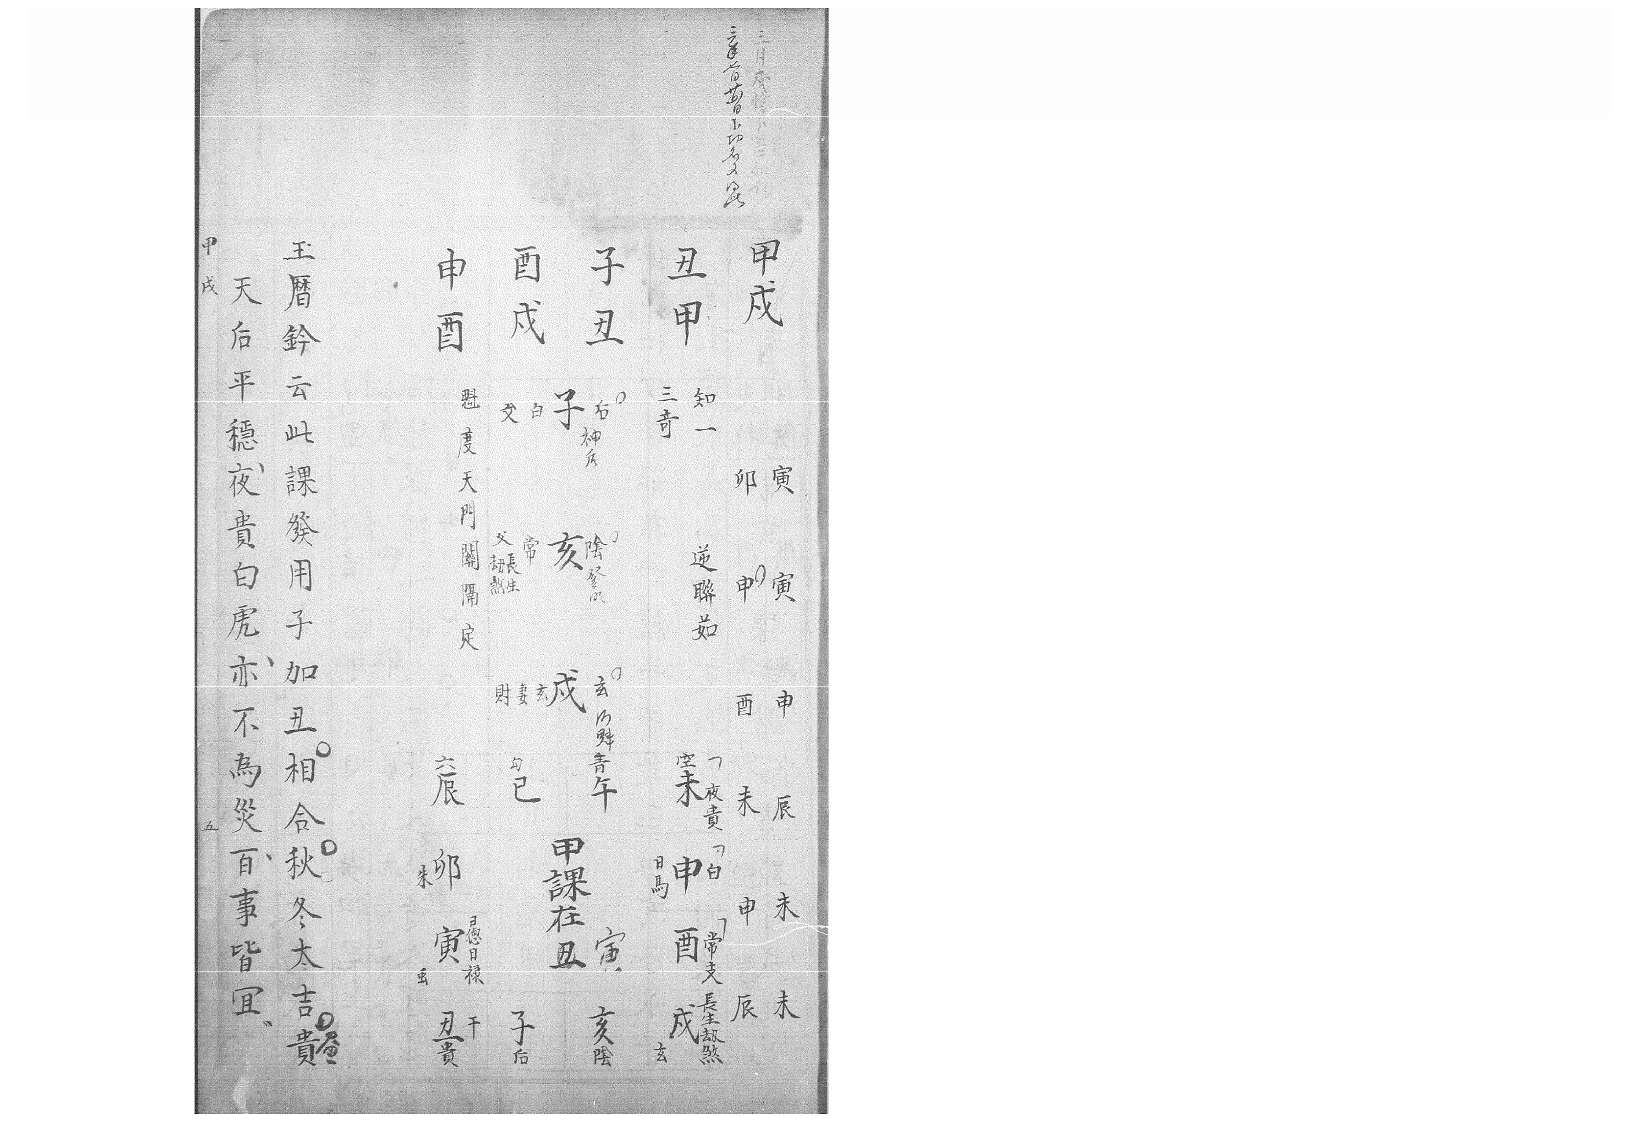 甲戌
寅寅申辰未未
卯申酉未申辰
丑甲
知一
三奇
逆聯茹
子丑
酉戌
申酉
后神后
子
白
父
陰登明
亥
常
父
長生
劫煞
玄
戌
玄
妻
財
魁度天門關隔定
夜貴
空未
白
申
日馬
常支
酉
長生劫煞
戌
玄
青午
寅
亥陰
勾巳
甲課在丑
子后
六辰
卯
朱
日德日祿
寅
干
丑貴
玉曆鈐云此課發用子加丑相合秋冬太吉晝貴
天后平穩夜貴白虎亦不為災百事皆宜
甲戌
五